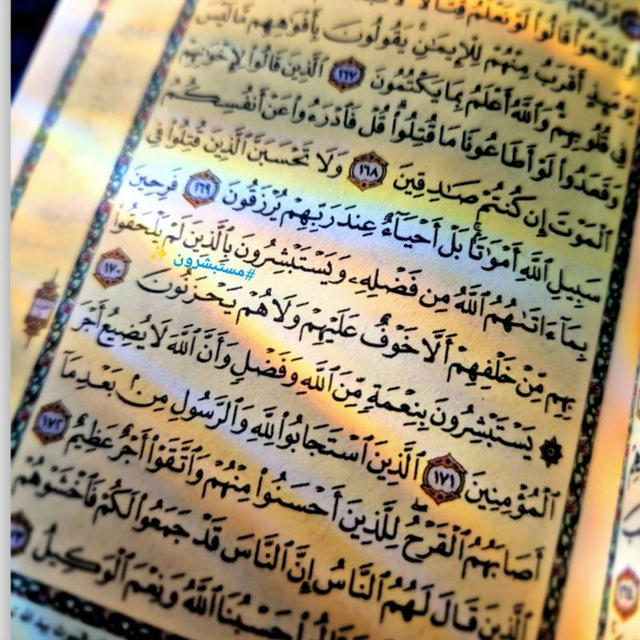 قَالُوا۟ لَوْ نَعْلَمُ قِتَالًا
يَوْمَئِذٍ أَقْرَبُ مِنْهُمْ لِلْإِيمَٰنِ يَقُولُونَ بِأَفْوَٰهِهِم مَّا لَيْسَ
فِى قُلُوبِهِمْ وَٱللَّهُ أَعْلَمُ بِمَا يَكْتُمُونَ ١٦٧ ٱلَّذِينَ قَالُوا۟ لِإِخْوَٰنِهِمْ
وَقَعَدُوا۟ لَوْ أَطَاعُونَا مَا قُتِلُوا۟ قُلْ فَٱدْرَءُوا۟ عَنْ أَنفُسِكُمُ
ٱلْمَوْتَ إِن كُنتُمْ صَٰدِقِينَ ١٦٨ وَلَا تَحْسَبَنَّ ٱلَّذِينَ قُتِلُوا۟ فِى
سَبِيلِ ٱللَّهِ أَمْوَٰتًۢا بَلْ أَحْيَآءٌ عِندَ رَبِّهِمْ يُرْزَقُونَ ١٦٩ فَرِحِينَ
بِمَآ ءَاتَىٰهُمُ ٱللَّهُ مِن فَضْلِهِۦ وَيَسْتَبْشِرُونَ بِٱلَّذِينَ لَمْ يَلْحَقُوا۟
#مستبشرون
بِهِم مِّنْ خَلْفِهِمْ أَلَّا خَوْفٌ عَلَيْهِمْ وَلَا هُمْ يَحْزَنُونَ ١٧٠
۞ يَسْتَبْشِرُونَ بِنِعْمَةٍ مِّنَ ٱللَّهِ وَفَضْلٍ وَأَنَّ ٱللَّهَ لَا يُضِيعُ أَجْرَ
ٱلْمُؤْمِنِينَ ١٧١ ٱلَّذِينَ ٱسْتَجَابُوا۟ لِلَّهِ وَٱلرَّسُولِ مِنۢ بَعْدِ مَآ
أَصَابَهُمُ ٱلْقَرْحُ لِلَّذِينَ أَحْسَنُوا۟ مِنْهُمْ وَٱتَّقَوْا۟ أَجْرٌ عَظِيمٌ ١٧٢
ٱلَّذِينَ قَالَ لَهُمُ ٱلنَّاسُ إِنَّ ٱلنَّاسَ قَدْ جَمَعُوا۟ لَكُمْ فَٱخْشَوْهُمْ
حَسْبُنَا ٱللَّهُ وَنِعْمَ ٱلْوَكِيلُ